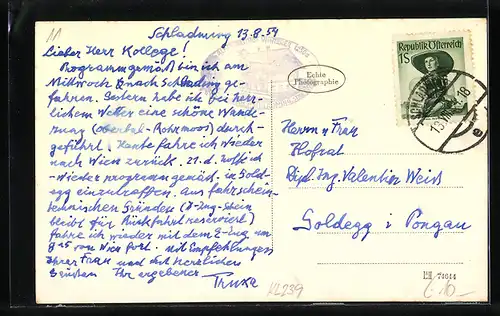 11
Schladming 13.8.54
Lieber Herr Kollege!
Programmgemäß bin ich am
Mittwoch nach Schladming ge-
fahren. Gestern habe ich bei herr-
lichem Wetter eine schöne Wande-
rung (Rohrmoos) durch-
geführt. Heute fahre ich wieder
nach Wien zurück. 21.d. hoffe ich
wieder programmgemäß in Gold-
egg einzutreffen. Aus fahrschein-
technischen Gründen
bleibt für Rückfahrt reserviert)
fahre ich wieder mit dem E-Zug um
von Wien fort. Mit Empfehlungen
Ihrer Frau und herzlichen
Grüßen Ihr ergebener
Echte
Photographie
Republik Österreich
1S
SCHLADMING
18
e
Herrn u Frau
Hofrat
Dipl. Ing. Valentin Weiß
Goldegg i Pongau
74044
KL239